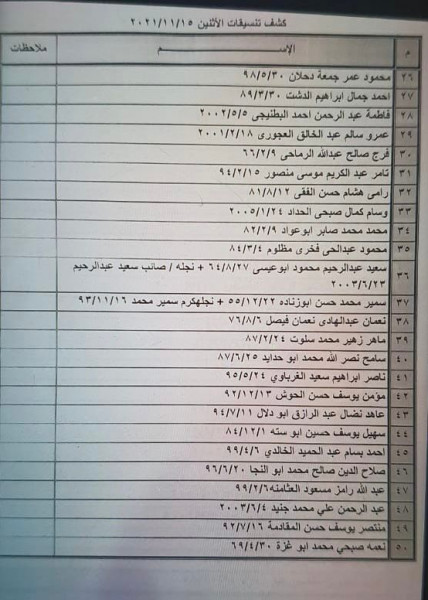 كشف تنسيقات الأثنين ٢٠٢١/١١/١٥
م الإســــــم ملاحظات
٢٦ محمود عمر جمعة دحلان ٩٨/٥/٣٠
٢٧ احمد جمال ابراهيم الدشت ٨٩/٣/٣٠
٢٨ فاطمة عبد الرحمن احمد البطنيجى ٢٠٠٢/٥/٥
٢٩ عمرو سالم عبد الخالق العجورى ٢٠٠١/٢/١٨
٣٠ فرج صالح عبدالله الرماحى ٦٦/٢/٩
٣١ تامر عبد الكريم موسى منصور ٩٤/٢/١٥
٣٢ رامى هشام حسن الفقى ٨١/٨/١٢
٣٣ وسام كمال صبحى الحداد ٢٠٠٥/١/٢٤
٣٤ محمد محمد صابر ابوعواد ٨٢/٢/٩
٣٥ محمود عبدالحى فخرى مظلوم ٨٤/٣/٤
٣٦ سعيد عبدالرحيم محمود ابوعيسى ٦٤/٨/٢٧ + نجله / صائب سعيد عبدالرحيم
٢٠٠٣/٦/٢٣
٣٧ سمير محمد حسن ابوزناده ٥٥/١٢/٢٢ + نجلهكرم سمير محمد ٩٣/١١/١٦
٣٨ نعمان عبدالهادى نعمان فيصل ٧٦/٨/٦
٣٩ ماهر زهير محمد سلوت ٨٧/٢/٢٤
٤٠ سامح نصر الله محمد ابو حدايد ٨٧/٦/٢٥
٤١ ناصر ابراهيم سعيد الغرباوي ٩٥/٥/٢٤
٤٢ مؤمن يوسف حسن الحوش ٩٢/١٢/١٣
٤٣ عاهد نضال عبد الرازق ابو دلال ٩٤/٧/١١
٤٤ سهيل يوسف حسين ابو سته ٨٤/١٢/١
٤٥ احمد بسام عبد الحميد الخالدي ٩٩/٤/٦
٤٦ صلاح الدين صالح محمد ابو النجا ٩٦/٦/٢٠
٤٧ عبد الله رامز مسعود العثامنه ٩٩/٢/٦
٤٨ عبد الرحمن علي محمد جنيد ٢٠٠٣/٦/٤
٤٩ منتصر يوسف حسن المقادمة ٩٢/٧/١٦
٥٠ نعمه صبحي محمد ابو غزة ٦٩/٤/٣٠